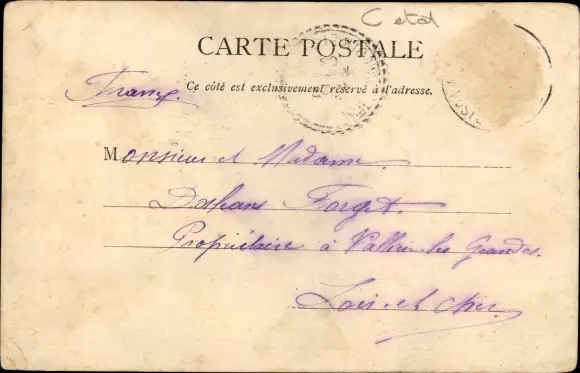 C etat
CARTE POSTALE
France.
Ce côté est exclusivement réservé à l'adresse.
Monsieur et Madame
Forget.
Propriétaire à Vallière les Grandes.
Loir et cher